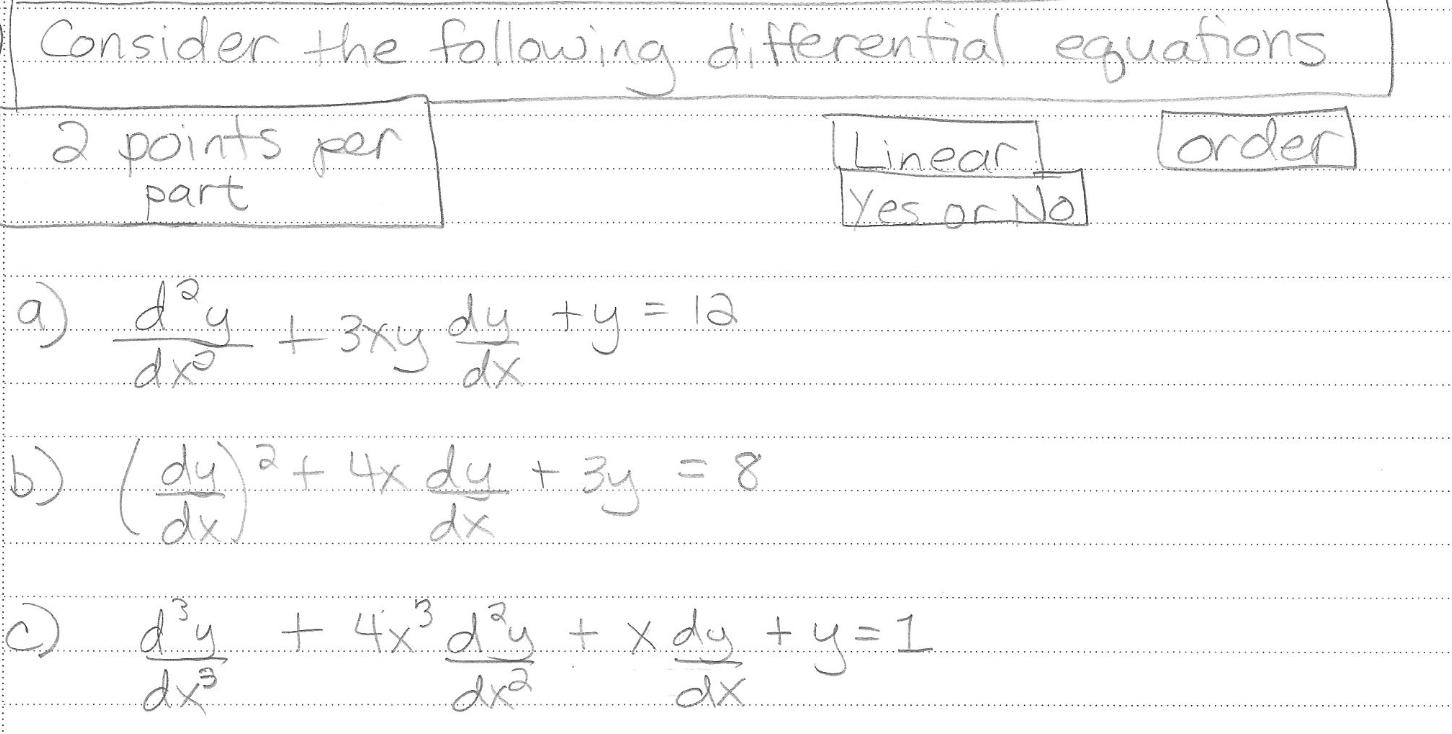 Consider the following differential equations
2 points per part
Linear
Yes or No
order
a) d²y/dx² + 3xy dy/dx + y = 12
b) (dy/dx)² + 4x dy/dx + 3y = 8
c) d³y/dx³ + 4x³ d²y/dx² + x dy/dx + y = 1